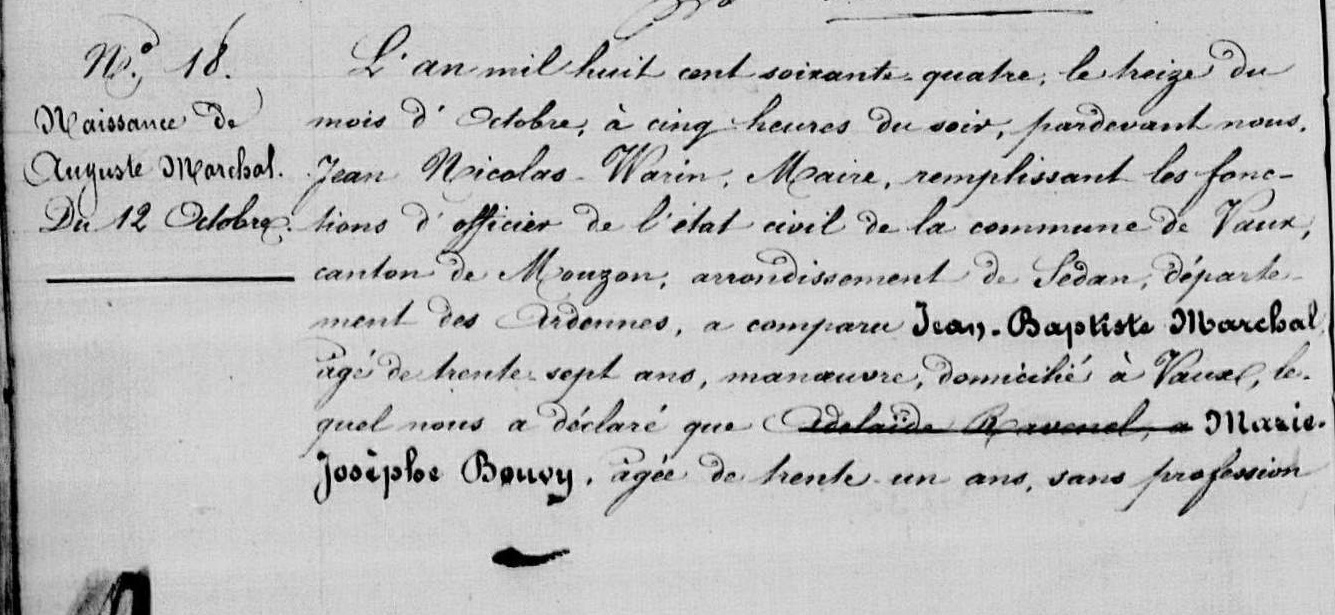 N.o 18.
Naissance de
Auguste Marchal.
Du 12 Octobre.
L'an mil huit cent soixante quatre, le treize du
mois d'Octobre, à cinq heures du soir, pardevant nous,
Jean Nicolas Warin, Maire, remplissant les fonc-
tions d'officier de l'état civil de la commune de Vaux,
canton de Mouzon, arrondissement de Sedan, départe-
ment des Ardennes, a comparu Jean-Baptiste Marchal
âgé de trente sept ans, manœuvre, domicilié à Vaux, le-
quel nous a déclaré que Adelaïde Ravenel, a Marie-
Josèphe Bouvy, âgée de trente un ans, sans profession